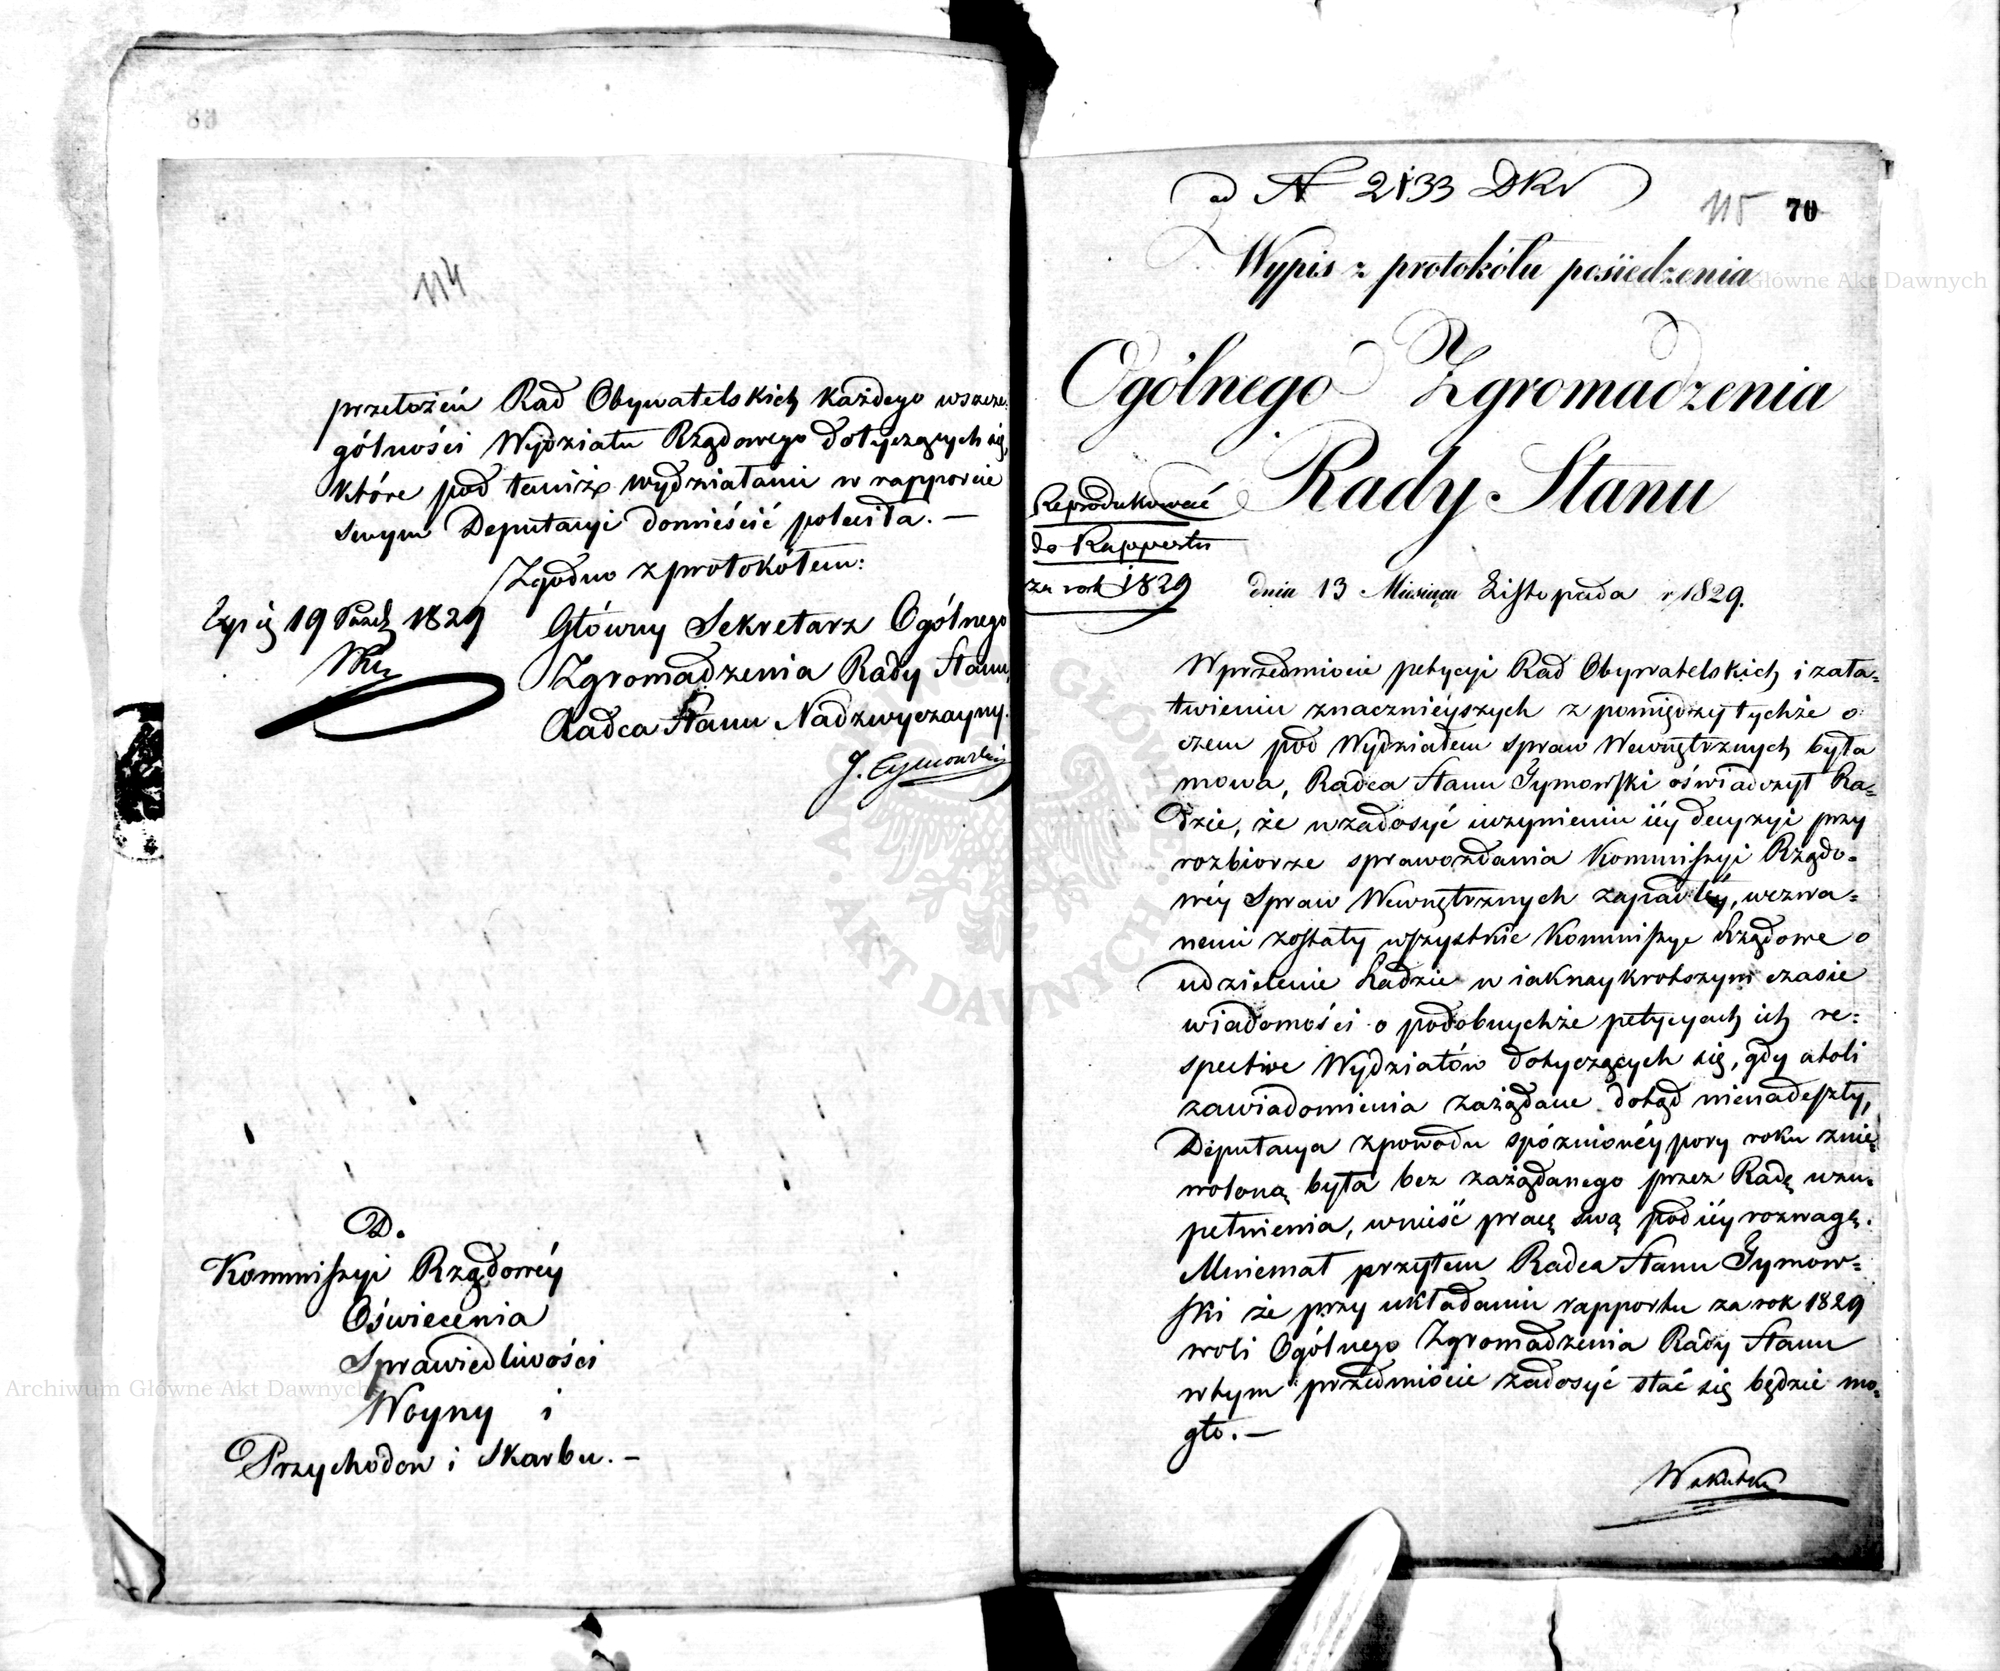 114
przełożeń Rad Obywatelskich każdego wszcze:
gólności Wydziału Rządowego dotyczących się,
które pod temiż wydziałami w rapporcie
swym Deputacyi domieścić poleciła. —
Zgodno z protokółem:
19 1829
Główny Sekretarz Ogólnego
Zgromadzenia Rady Stanu,
Radca Stanu Nadzwyczayny.
J. Tymowski
D.
Kommissyi Rządowéy
Oświecenia
Sprawiedliwości
Woyny i
Przychodow i Skarbu. —
ad N 2133 DKr
115 70
Wypis z protokółu posiedzenia
Ogólnego Zgromadzenia
Rady Stanu
Reprodukować
do Rapportu
za rok 1829
dnia 13 Miesiąca Listopada r 1829.
W przedmiocie petycyi Rad Obywatelskich i zała=
twieniu znacznieyszych z pomiędzy tychże o
czem pod Wydziałem spraw Wewnętrznych była
mowa, Radca Stanu Tymowski oświadczył Ra=
dzie, że w zadosyć uczynieniu iéy decyzyi przy
rozbiorze sprawozdania Kommissyi Rządo=
wéy Spraw Wewnętrznych zapadłéy, wezwa=
nemi zostały wszystkie Kommissye Rządowe o
udzielenie Radzie w iaknaykrotszym czasie
wiadomości o podobnychże petycyach ich re=
spective Wydziałów dotyczących się, gdy atoli
zawiadomienia zażądane dotąd nienadeszły,
Deputacya z powodu spóznionéy pory roku znie=
woloną była bez zażądanego przez Radę uzu=
pełnienia, wnieść pracę swą pod iéy rozwagę.
Mniemał przytem Radca Stanu Tymow=
ski że przy układaniu rapportu za rok 1829
woli Ogólnego Zgromadzenia Rady Stanu
w tym przedmiocie zadosyć stać się będzie mo=
gło. —
W skutku
Archiwum Główne Akt Dawnych